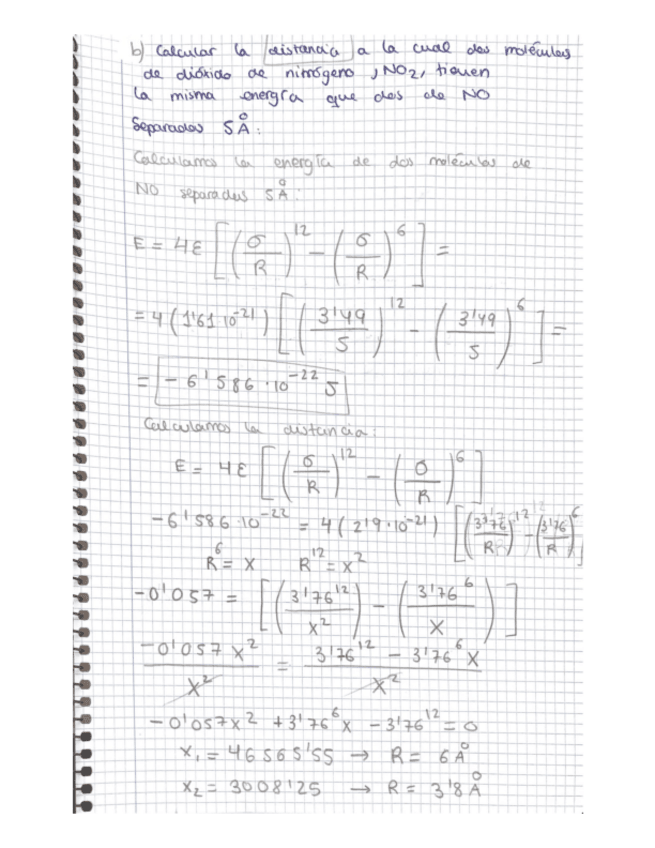 b) Calcular la distancia a la cual dos moléculas
de dióxido de nitrógeno, NO2, tienen
la misma energía que dos de NO
separadas 5 Å:
Calculamos la energía de dos moléculas de
NO separadas 5 Å:
E = 4ε [(σ/R)^12 - (σ/R)^6] =
= 4 (1'61·10^-21) [(3'49/5)^12 - (3'49/5)^6] =
= -6'586·10^-22 J
Calculamos la distancia:
E = 4ε [(σ/R)^12 - (σ/R)^6]
-6'586·10^-22 = 4 (2'9·10^-21) [(3'76/R)^12 - (3'76/R)^6]
R^6 = x R^12 = x^2
-0'057 = [(3'76^12/x^2) - (3'76^6/x)]
-0'057x^2/x^2 = 3'76^12 - 3'76^6 x/x^2
-0'057x^2 + 3'76^6 x - 3'76^12 = 0
x1 = 46565'55 → R = 6 Å
x2 = 3008'125 → R = 3'8 Å